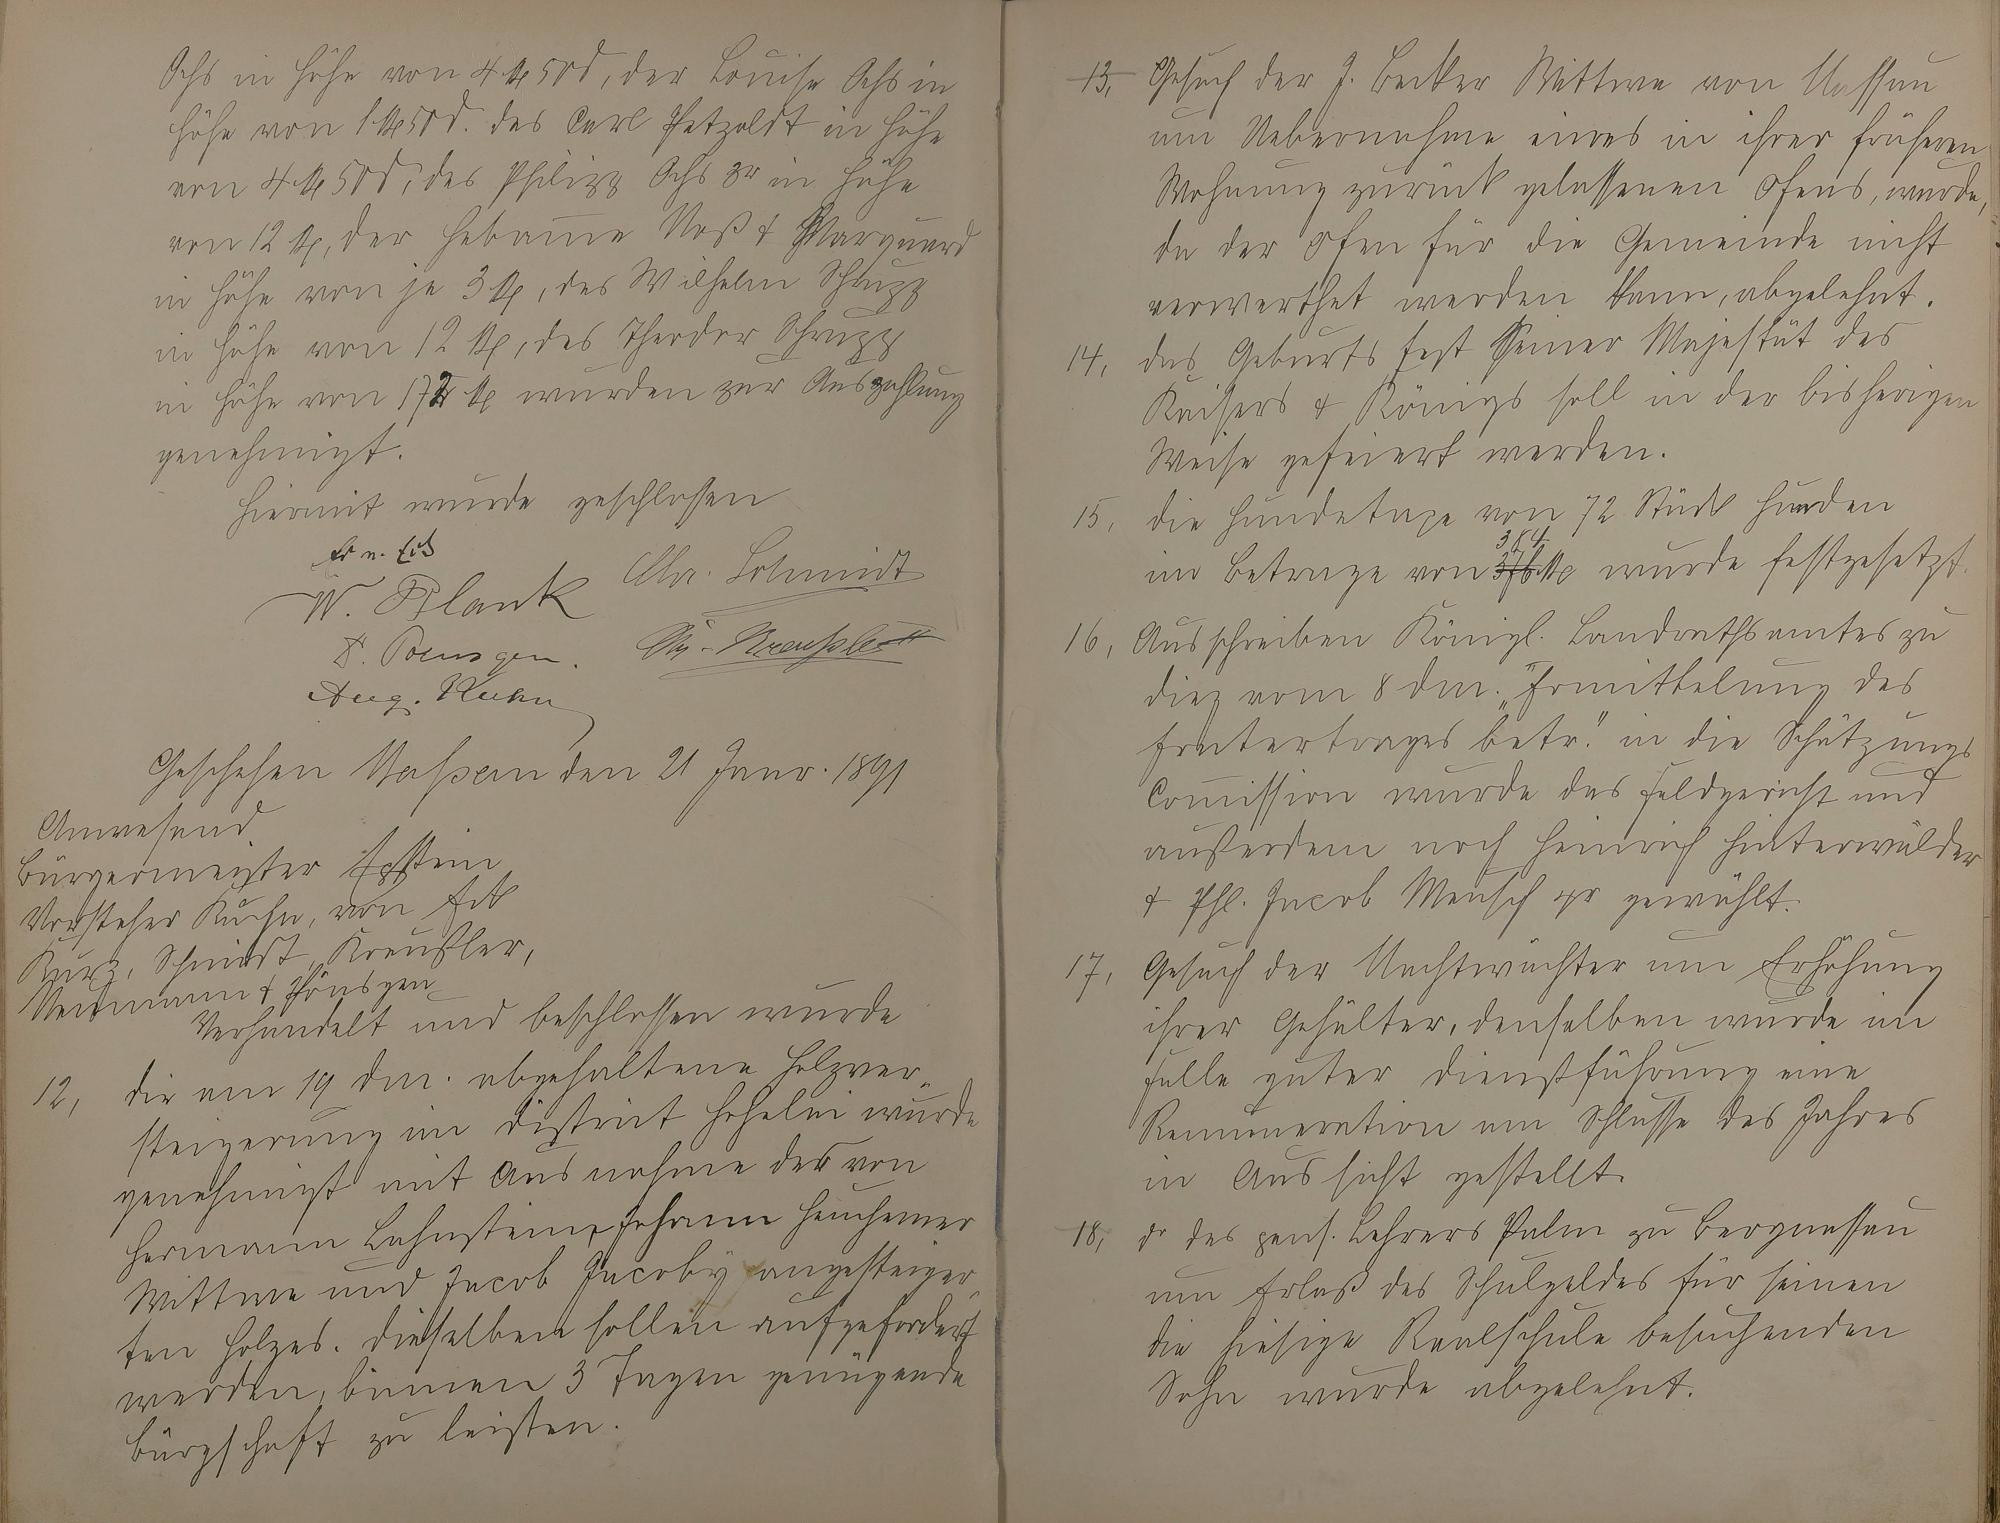 Ochs in Höhe von 4 M 50 d, der Louise Ochs in
Höhe von 1 M 50 d. des Carl Petzoldt in Höhe
von 4 M 50 d, des Philipp Ochs 3r in Höhe
von 12 M, der Hebamme Noß & Marquard
in Höhe von je 3 M, des Wilhelm Schrupp
in Höhe von 12 M, des Theodor Schrupp
in Höhe von 172 M wurden zur Auszahlung
genehmigt.
Hiermit wurde geschlossen
W. Plank
Chr. Schmidt
P. Poensgen.
Chr. Kreußler
Aug. Kuhn
Geschehen Nassau den 21 Janr. 1891
Anwesend
Bürgermeister Epstein
Vorsteher Kuhn, von Eck
Kurz, Schmidt, Kreußler,
Neumann & Pönsgen
Verhandelt und beschlossen wurde
12, die am 19 dM. abgehaltene Holzver„
steigerung im District Hohelei wurde
genehmigt mit Ausnahme des von
Hermann Lahnstein, Johann Heuchemer
Wittwe und Jacob Jacoby angesteiger„
ten Holzes. dieselben sollen aufgefordert
werden, binnen 3 Tagen genügende
Bürgschaft zu leisten.
13, Gesuch der J. Becker Wittwe von Nassau
um Uebernahme eines in ihrer früheren
Wohnung zurück gelassenen Ofens, wurde,
da der Ofen für die Gemeinde nicht
verwerthet werden kann, abgelehnt.
14, das Geburtsfest Seiner Majestät des
Kaisers & Königs soll in der bisherigen
Weise gefeiert werden.
15, die Hundetaxe von 72 Stück Hunden
384
im Betrage von 376 M wurde festgesetzt.
16, Ausschreiben Königl. Landrathsamtes zu
Diez vom 8 dM. „Ermittelung des
Ernteertrages betr." in die Schätzungs
Commission wurde das Feldgericht und
außerdem noch Heinrich Hinterwälder
& Phl. Jacob Mensch 4r gewählt.
17, Gesuch der Nachtwächter um Erhöhung
ihrer Gehälter, denselben wurde im
Falle guter Dienstführung eine
Remuneration am Schlusse des Jahres
in Aussicht gestellt.
18, do des pens. Lehrers Palm zu Bergnassau
um Erlaß des Schulgeldes für seinen
die hiesige Realschule besuchenden
Sohn wurde abgelehnt.